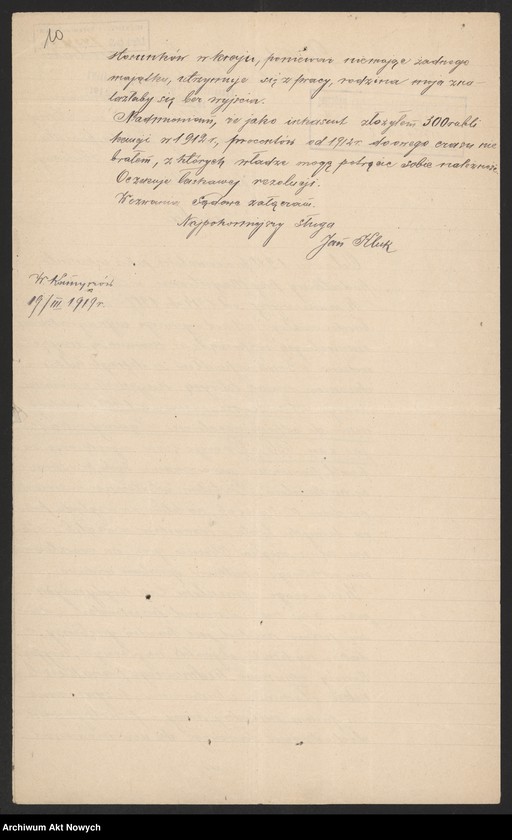 10
stosunków w kraju, ponieważ nie mając żadnego
majątku, utrzymuję się z pracy, rodzina moja zna-
lazłaby się bez wyjścia.
Nadmieniam, że jako inkasent złożyłem 300 rubli
kaucji w 1912 r., procentów od 1914 r. do czasu nie
brałem, z których władze mogą potrącić sobie należność.
Oczekuję łaskawej rezolucji.
Wezwanie Sądowe załączam.
Najpokorniejszy sługa
Jan Kluk
W.
19/III 1919 r.
Archiwum Akt Nowych